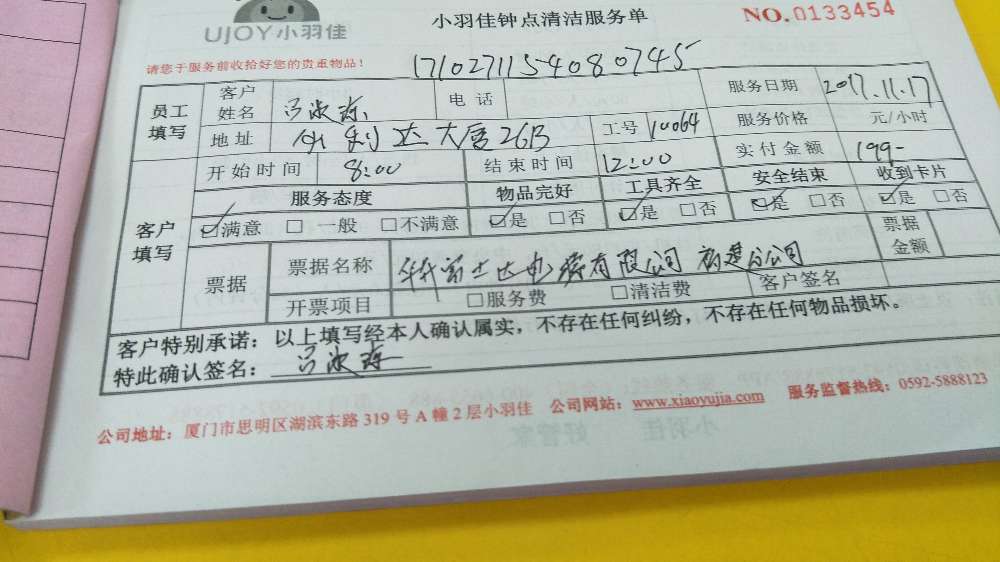 UJOY小羽佳
小羽佳钟点清洁服务单
NO.0133454
请您于服务前收拾好您的贵重物品!
1710271154080745
员工填写 客户姓名 电话 服务日期 2017.11.17
地址 利达大厦26B 工号 10064 服务价格 元/小时
开始时间 8:00 结束时间 12:00 实付金额 199-
客户填写 服务态度 物品完好 工具齐全 安全结束 收到卡片
☑满意 □ 一般 □不满意 ☑是 □否 ☑是 □否 ☑是 □否 ☑是 □否
票据 票据名称 富士达电梯有限公司 福建分公司 票据金额
开票项目 □服务费 □清洁费 客户签名
客户特别承诺：以上填写经本人确认属实，不存在任何纠纷，不存在任何物品损坏。
特此确认签名：
公司地址：厦门市思明区湖滨东路 319 号 A 幢 2 层小羽佳 公司网站：www.xiaoyujia.com 服务监督热线：0592-5888123